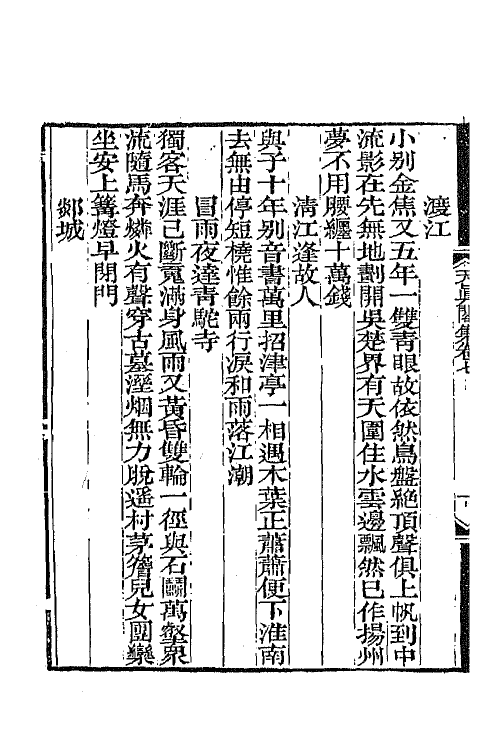 渡江
小别金焦又五年一雙靑眼故依然鳥盤絶頂聲俱上帆到中
流影在先無地劃開吳楚界有天圍住水雲邊飄然已作揚州
夢不用腰纏十萬錢
淸江逢故人
與子十年别音書萬里招津亭一相遇木葉正蕭蕭便下淮南
去無由停短橈惟餘兩行淚和雨落江潮
冒雨夜達靑駝寺
獨客天涯已斷䰟滿身風雨又黃昏雙輪一徑與石鬬萬壑泉
流隨馬奔燐火有聲穿古墓溼烟無力脫遥村茅簷兒女團欒
坐安上篝燈早閉門
郯城
天眞閣集卷七